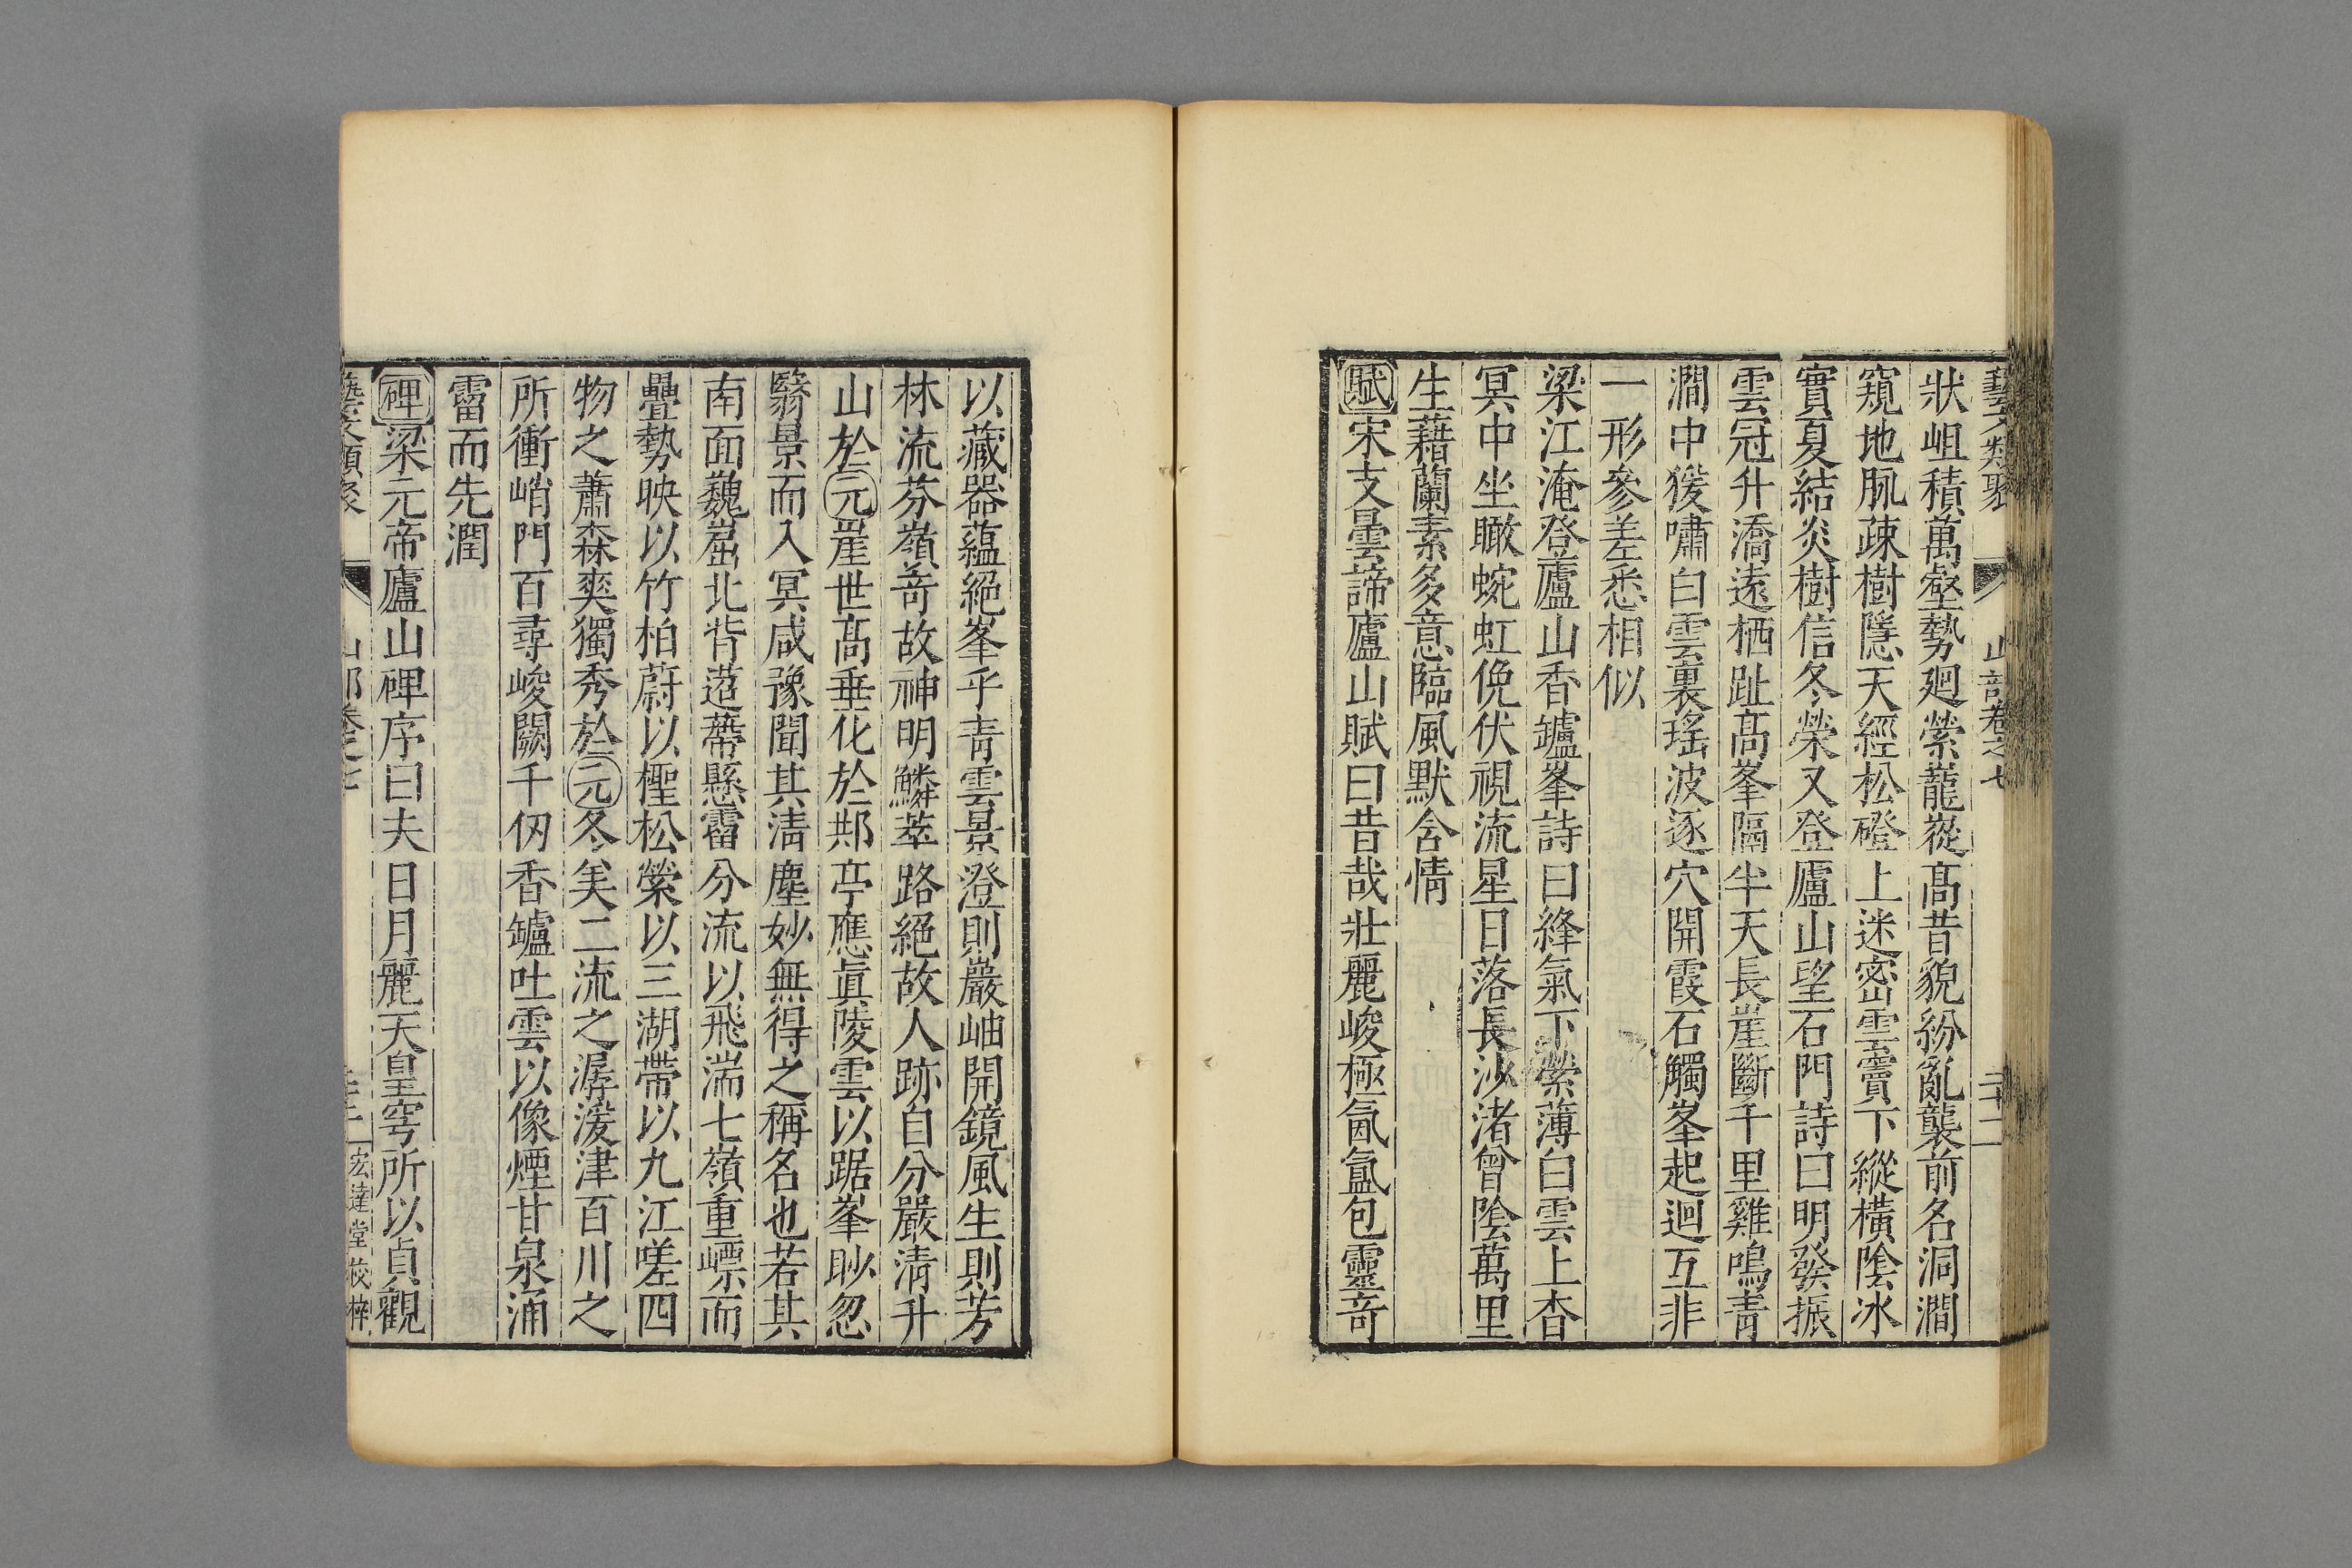 藝文類聚 山部卷之七 二十二
狀岨積萬壑勢𢌞縈巃嵷髙昔貌紛亂襲前名洞澗
窺地脉疎樹隱天經松磴上迷密雲竇下縱橫陰冰
實夏結炎樹信冬榮又登廬山望石門詩曰明發振
雲冠升嶠遠栖趾髙峯隔半天長崖斷千里雞鳴青
澗中猨嘯白雲裏瑤波逐穴開霞石觸峯起迴互非
一形參差悉相似
梁江淹登廬山香罏峯詩曰絳氣下縈薄白雲上杳
冥中坐瞰蜿虹俛伏視流星日落長沙渚曾陰萬里
生藉蘭素多意臨風默含情
賦宋支曇諦廬山賦曰昔哉壯麗峻極氤氳包靈竒
以藏器蘊絕峯乎青雲景澄則巖岫開鏡風生則芳
林流芬嶺竒故神明鱗萃路絕故人跡自分嚴清升
山於元崖世髙垂化於䢼亭應眞陵雲以踞峯眇忽
翳景而入冥咸豫聞其清塵妙無得之稱名也若其
南面巍崫北背蓝蔕懸霤分流以飛湍七嶺重嶫而
疊勢映以竹柏蔚以檉松縈以三湖帶以九江嗟四
物之蕭森爽獨秀於元冬美二流之潺湲津百川之
所衝峭門百尋峻闕千仞香罏吐雲以像煙甘泉涌
霤而先潤
碑梁元帝廬山碑序曰夫日月麗天皇穹所以貞觀
藝文類聚 山部卷之七 宏達堂校梓